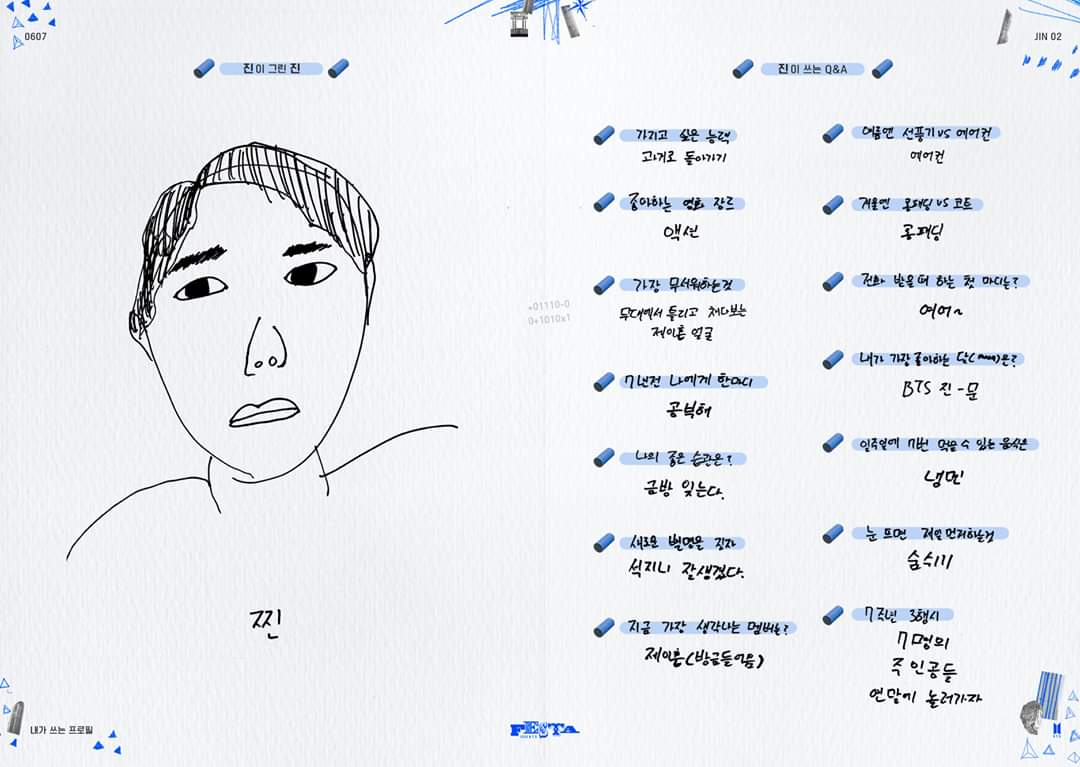 0607
진이 그린 진
찐
내가 쓰는 프로필
JIN 02
진이 쓰는 Q&A
가지고 싶은 능력
과거로 돌아가기
좋아하는 영화 장르
액션
가장 무서워하는것
무대에서 틀리고 쳐다보는
제이홉 얼굴
7년전 나에게 한마디
공부해
나의 좋은 습관은?
금방 잊는다.
새로운 별명을 짓자
석지니 잘생겼다.
지금 가장 생각나는 멤버는?
제이홉(방금들어옴)
여름엔 선풍기 vs 에어컨
에어컨
겨울엔 롱패딩 vs 코트
롱패딩
전화 받을때 하는 첫 마디는?
여어~
내가 가장 좋아하는 달(moon)은?
BTS 진-문
일주일에 7번 먹을수 있는 음식은
냉면
눈 뜨면 제일먼저하는것
숨쉬기
7주년 3행시
7명의
주인공들
연말에 놀러가자
+01110-0
0+1010x1
FESTA
BTS